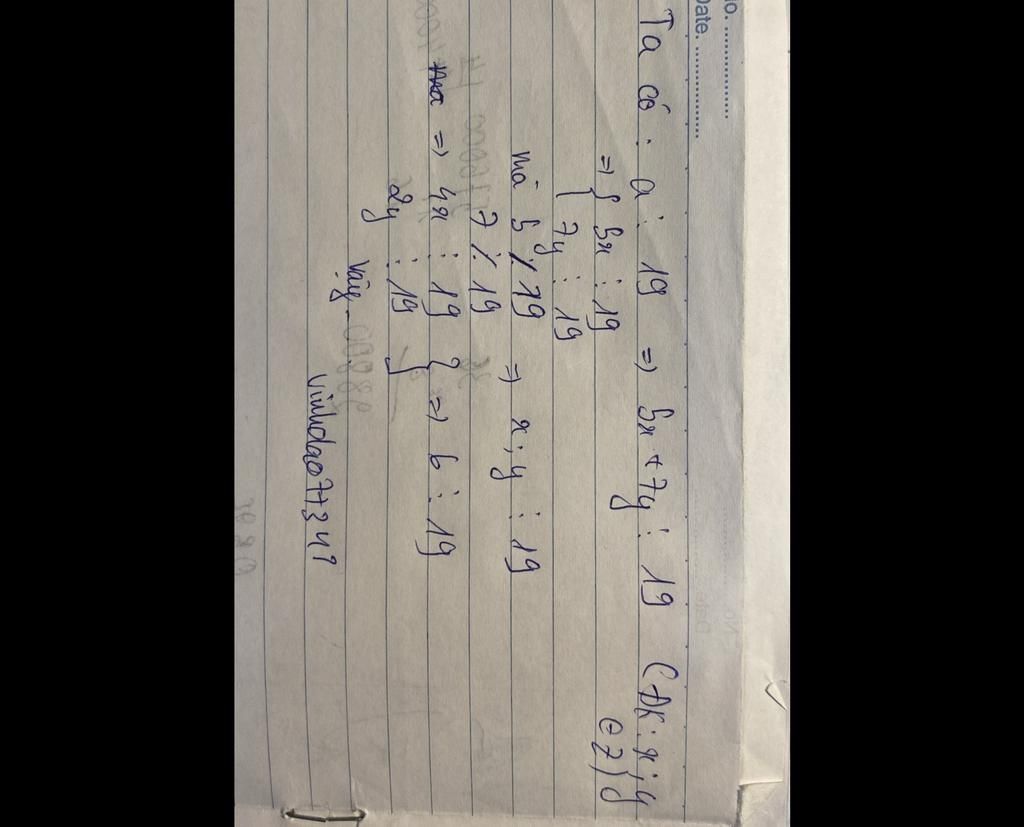 No. ..............
Date. ..............
Ta có : a ⋮ 19 => 5x + 7y ⋮ 19 (ĐK: x; y
∈ Z)
=> { 5x ⋮ 19
{ 7y ⋮ 19
mà 5 ⋮̸ 19 => x; y ⋮ 19
7 ⋮̸ 19
=> 4x ⋮ 19 } => b ⋮ 19
2y ⋮ 19 }
Vậy -
vinhdao7+34?